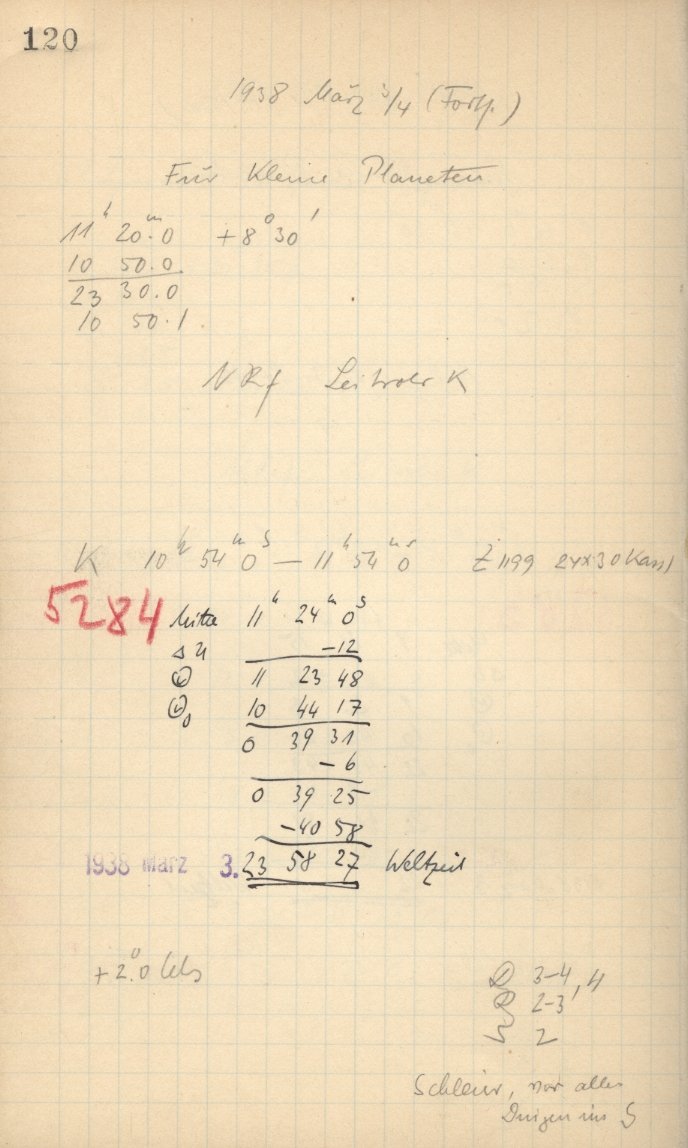 120
1938 März 3/4 (Forts.)
Für Kleine Planeten
11ʰ 20ᵐ.0 +8° 30'
10 50.0
23 30.0
10 50.1
NRf Leitrohr K
K 10ʰ 54ᵐ 0ˢ — 11ʰ 54ᵐ 0ˢ Z 1199 24x30 Kass
5284
Mitte 11ʰ 24ᵐ 0ˢ
Δu −12
11 23 48
10 44 17
0 39 31
− 6
0 39 25
−40 58
1938 März 3. 23 58 27 Weltzeit
+2°.0 Cels
D 3-4, 4
R 2-3
S 2
Schleier, vor allem
im S